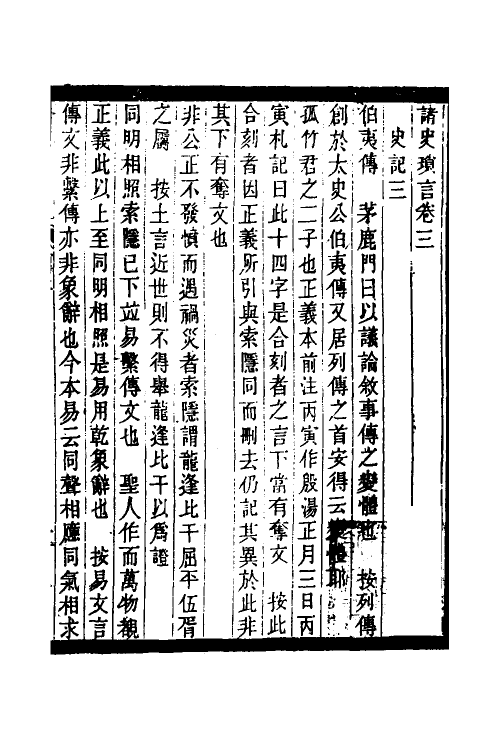 諸史瑣言卷三
史記三
伯夷傳　茅鹿門曰以議論敘事傳之變體也　按列傳
創於太史公伯夷傳又居列傳之首安得云變體耶
孤竹君之二子也正義本前注丙寅作殷湯正月三日丙
寅札記曰此十四字是合刻者之言下當有奪文　按此
合刻者因正義所引與索隱同而刪去仍記其異於此非
其下有奪文也
非公正不發憤而遇禍災者索隱謂龍逢比干屈平伍胥
之屬　按上言近世則不得舉龍逢比干以爲證
同明相照索隱已下竝易繫傳文也　聖人作而萬物覩
正義此以上至同明相照是易用乾象辭也　按易文言
傳文非繫傳亦非象辭也今本易云同聲相應同氣相求